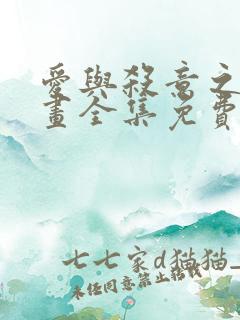 愛與殺意之
畫全集免費
七七家d猫猫_
未经同意禁止搬载